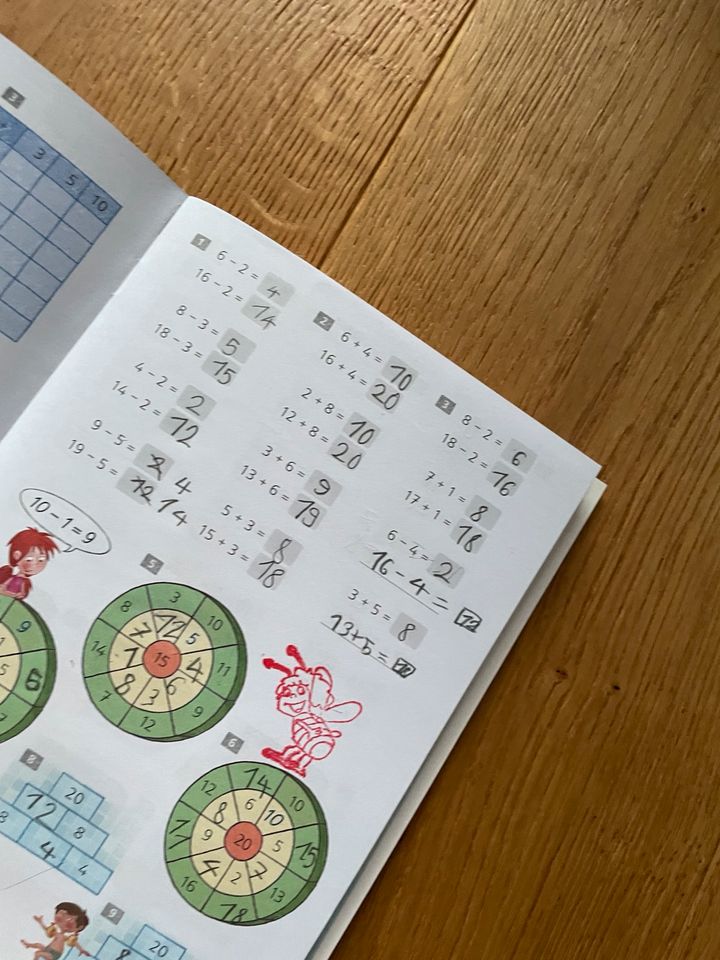 3
3 5 10
1
6 – 2 = 4
16 – 2 = 14
8 – 3 = 5
18 – 3 = 15
4 – 2 = 2
14 – 2 = 12
9 – 5 = 4
19 – 5 = 14
2
6 + 4 = 10
16 + 4 = 20
2 + 8 = 10
12 + 8 = 20
3 + 6 = 9
13 + 6 = 19
5 + 3 = 8
15 + 3 = 18
3
8 – 2 = 6
18 – 2 = 16
7 + 1 = 8
17 + 1 = 18
6 – 4 = 2
16 – 4 = 12
3 + 5 = 8
13 + 5 = 18
10 – 1 = 9
9
6
5
3 10 11 9 12 7 14 8
12 5 4 6 3 8 1 7
15
6
14 10 15 13 18 16 12
6 10 5 7 2 4 9 8
20
8
20
12 8
8 4 4
9
20
8